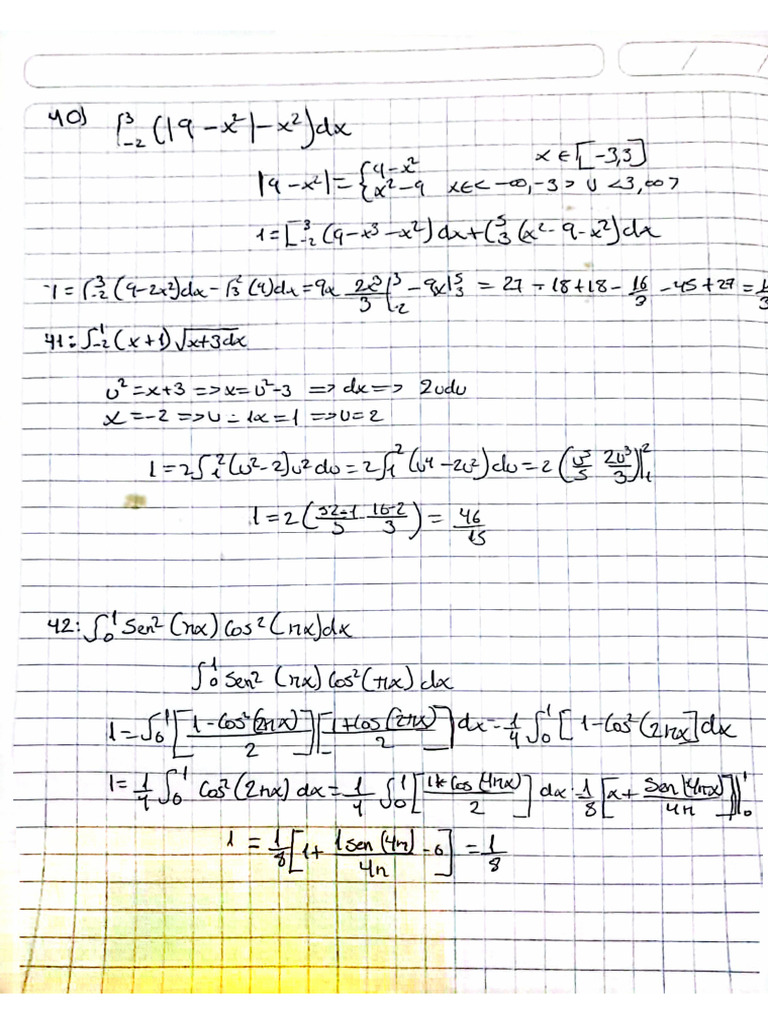 40) ∫₋₂³ (|9 - x²| - x²)dx
|9 - x²| = { 9 - x² x ∈ [-3,3]
x² - 9 x ∈ < -∞, -3 > ∪ < 3, ∞ >
I = ∫₋₂³ (9 - x³ - x²) dx + ∫₃⁵ (x² - 9 - x²) dx
I = ∫₋₂³ (9 - 2x²)dx - ∫₃⁵ (9)dx = 9x 2x³/3 |₋₂³ - 9x|₃⁵ = 27 - 18 + 18 - 16/3 - 45 + 27 =
41: ∫₋₂¹ (x+1) √x+3dx
u² = x+3 => x = u² - 3 => dx => 2udu
x = -2 => u = 1x = 1 => u = 2
I = 2∫₁² (u² - 2)u² du = 2∫₁² (u⁴ - 2u²) du = 2 (u⁵/5 2u³/3)|₁²
I = 2 (32-1/5 16-2/3) = 46/15
42: ∫₀¹ Sen² (πx) Cos² (πx)dx
∫₀¹ Sen² (πx) Cos² (πx) dx
I = ∫₀¹ [1 - Cos² (2πx)/2] [1 + Cos (2πx)/2] dx = 1/4 ∫₀¹ [1 - Cos² (2πx] dx
I = 1/4 ∫₀¹ Cos² (2πx) dx = 1/4 ∫₀¹ [1+ Cos (4πx)/2] dx · 1/8 [x + Sen (4πx)/4π]|₀¹
I = 1/8 [1 + 1 sen (4π)/4π - 0] = 1/8